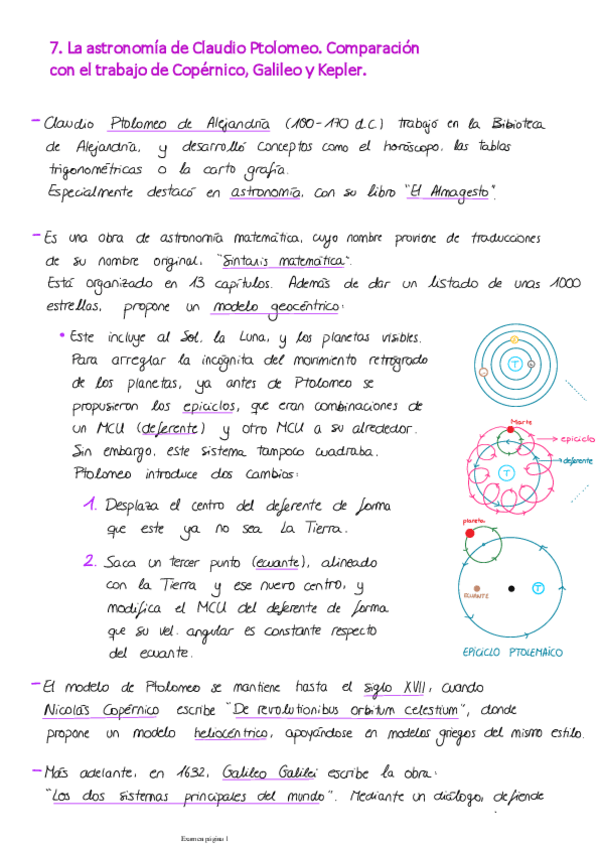 7. La astronomía de Claudio Ptolomeo. Comparación
con el trabajo de Copérnico, Galileo y Kepler.
- Claudio Ptolomeo de Alejandría (100-170 d.C.) trabajó en la Bibioteca
de Alejandría, y desarrolló conceptos como el horóscopo, las tablas
trigonométricas o la carto grafía.
Especialmente destacó en astronomía, con su libro "El Almagesto".
- Es una obra de astronomía matemática, cuyo nombre proviene de traducciones
de su nombre original, "Sintaxis matemática".
Está organizado en 13 capítulos. Además de dar un listado de unas 1000
estrellas, propone un modelo geocéntrico:
• Este incluye al Sol, la Luna, y los planetas visibles.
Para arreglar la incógnita del movimiento retrógrado
de los planetas, ya antes de Ptolomeo se
propusieron los epiciclos, que eran combinaciones de
un MCU (deferente) y otro MCU a su alrededor.
Sin embargo, este sistema tampoco cuadraba.
Ptolomeo introduce dos cambios:
1. Desplaza el centro del deferente de forma
que este ya no sea La Tierra.
2. Saca un tercer punto (ecuante), alineado
con la Tierra y ese nuevo centro, y
modifica el MCU del deferente de forma
que su vel. angular es constante respecto
del ecuante.
T
Marte
epiciclo
deferente
T
planeta
ECUANTE
T
EPICICLO PTOLEMAICO
- El modelo de Ptolomeo se mantiene hasta el siglo XVII, cuando
Nicolás Copérnico escribe "De revolutionibus orbitum celestium", donde
propone un modelo heliocéntrico, apoyándose en modelos griegos del mismo estilo.
- Más adelante, en 1632, Galileo Galilei escribe la obra:
"Los dos sistemas principales del mundo". Mediante un diálogo, defiende
Examen página 1